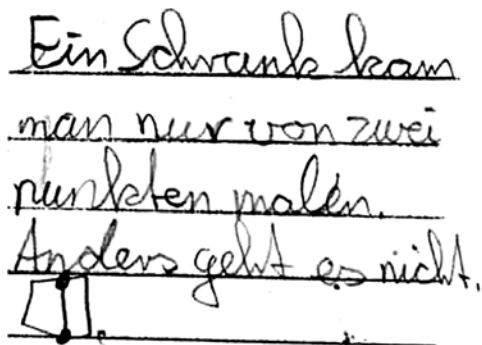 Ein Schrank kam
man nur von zwei
punkten malen.
Anders geht es nicht.